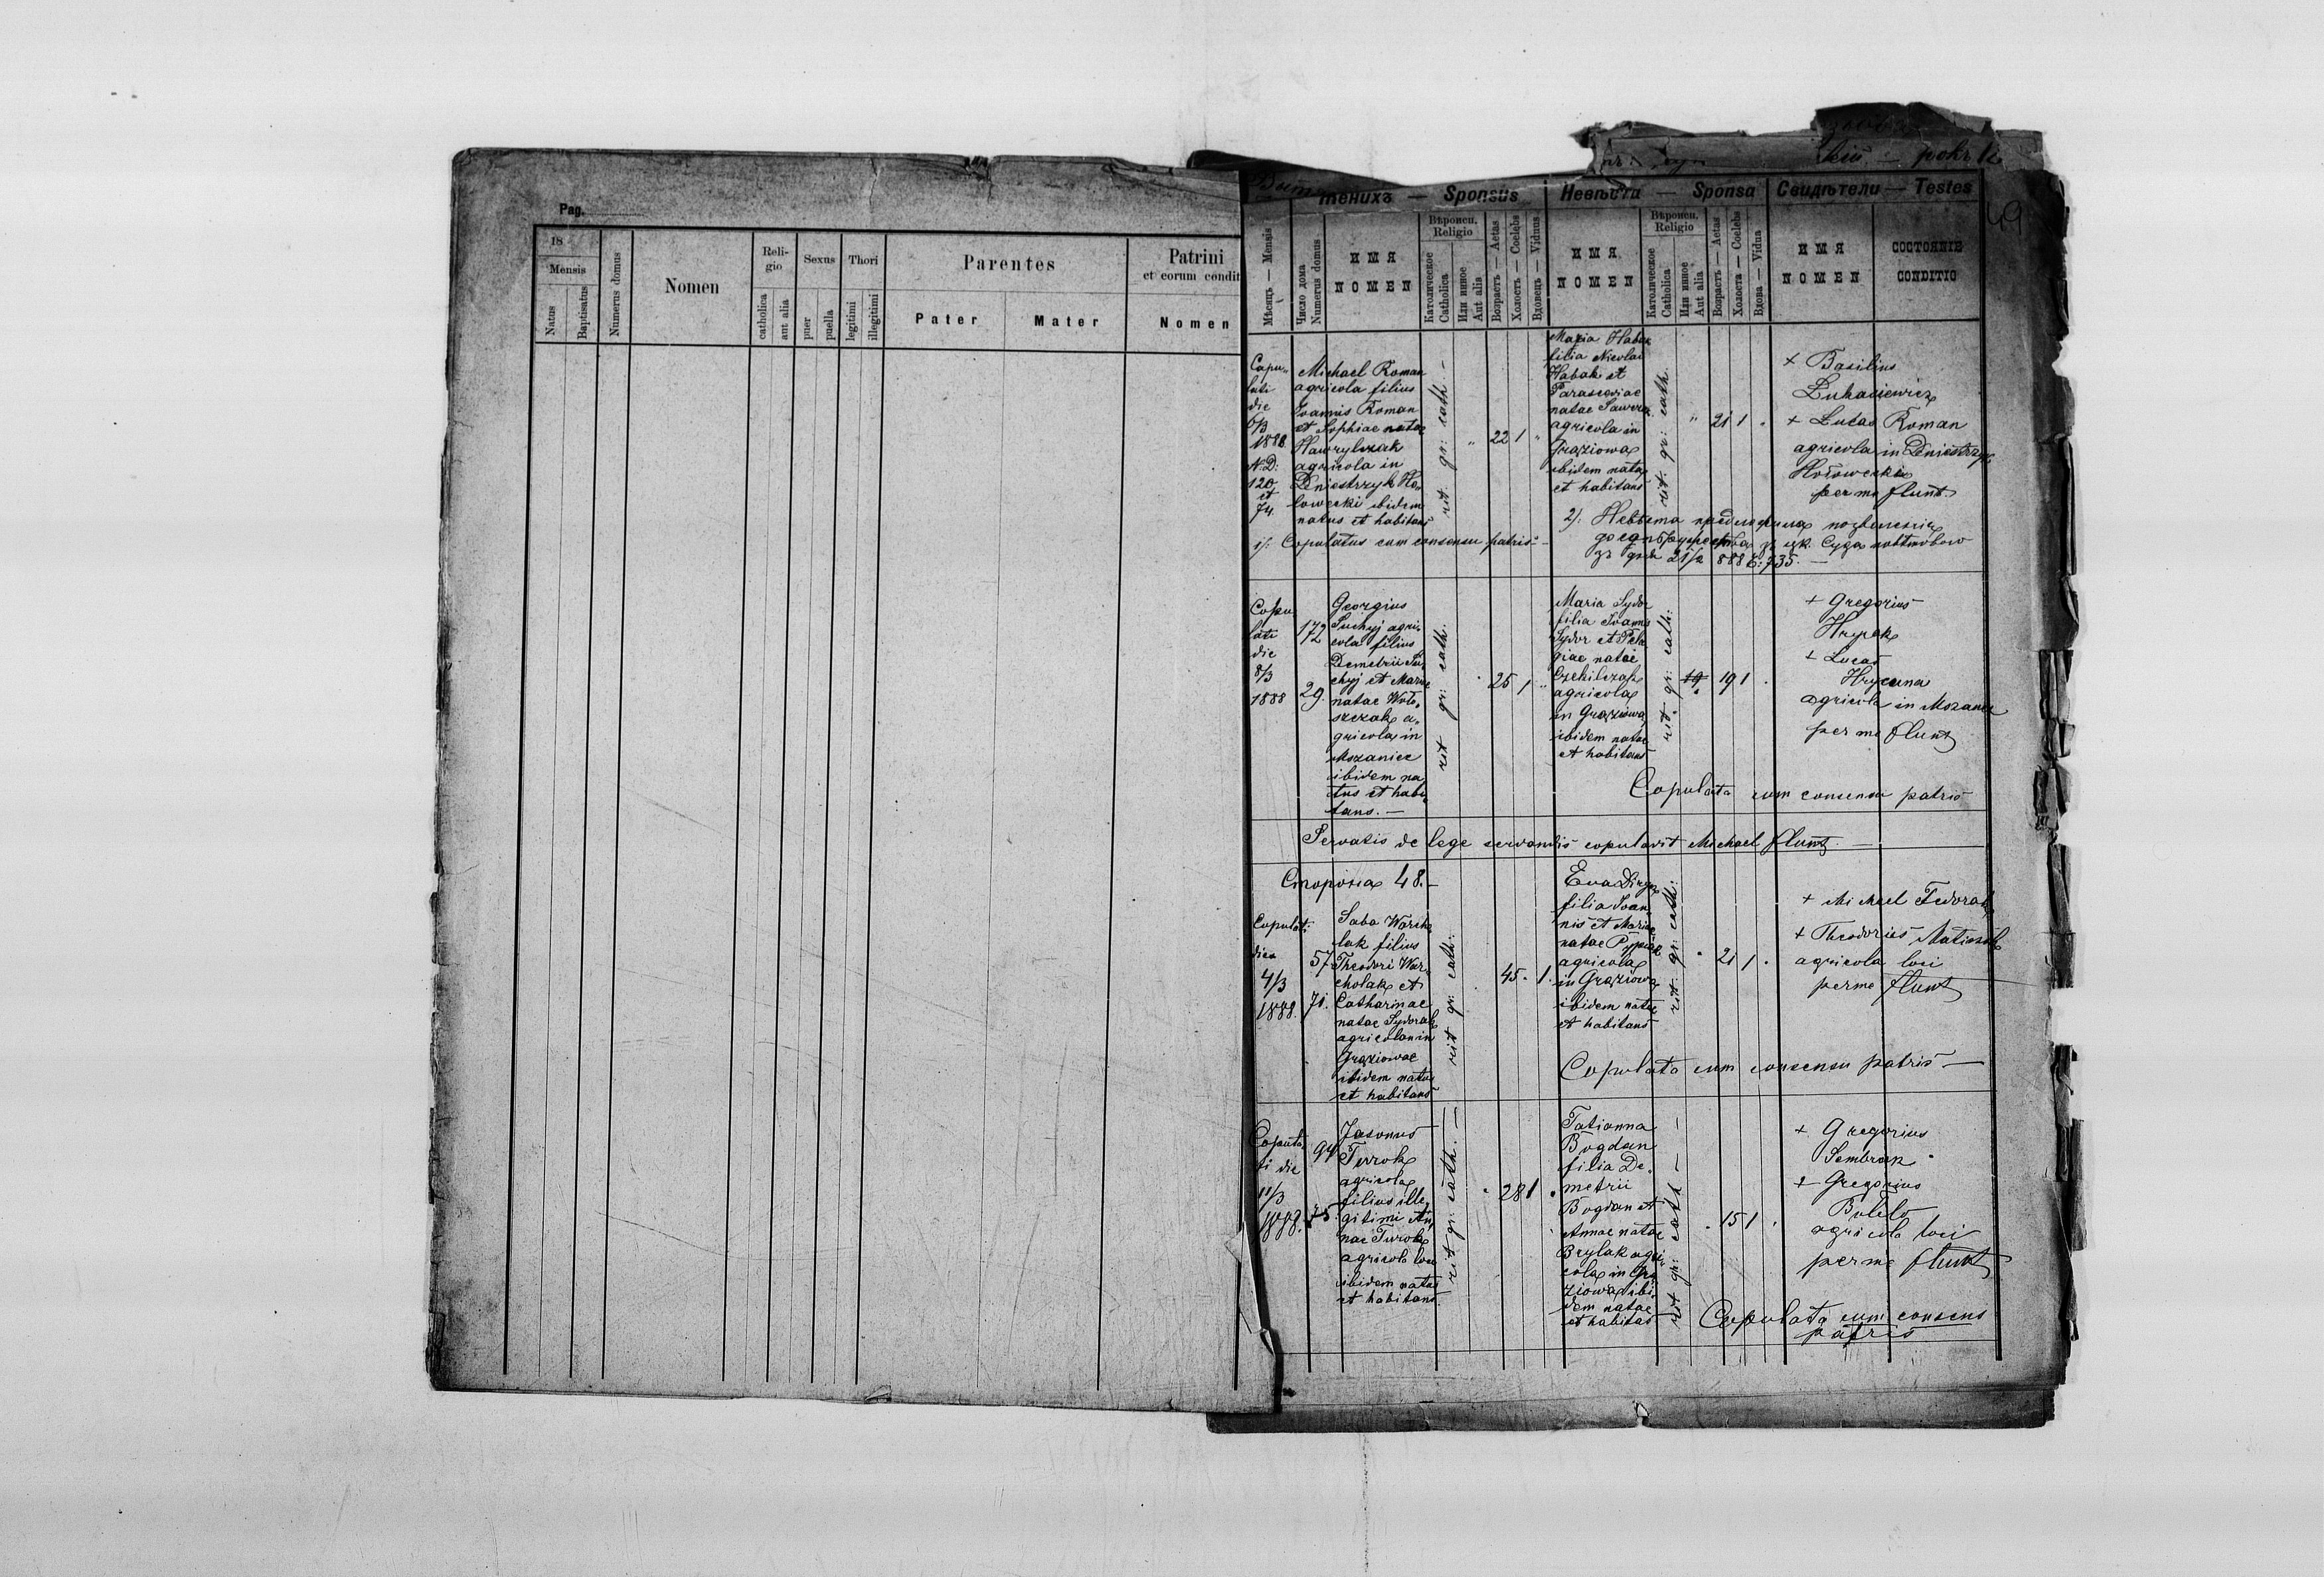 Pag.
18
Mensis
Natus
Baptisatus
Numerus domus
Nomen
Reli-
gio
catholica
aut alia
Sexus
puer
puella
Thori
legitimi
illegitimi
Parentes
Pater
Mater
Patrini
et eorum condit
Nomen
pokr
49
Женихъ — Sponsus
Невѣста — Sponsa
Свидѣтели — Testes
Мѣсяцъ — Mensis
Число дома
Numerus domus
ИМЯ
NOMEN
Вѣроисп.
Religio
Католическое
Catholica
Или инное
Aut alia
Возрастъ — Aetas
Холостъ — Coelebs
Вдовецъ — Viduus
ИМЯ
NOMEN
Вѣроисп.
Religio
Католическое
Catholica
Или инное
Aut alia
Возрастъ — Aetas
Холоста — Coelebs
Вдова — Vidua
ИМЯ
NOMEN
СОСТОЯНІЕ
CONDITIO
Copu-
lati
die
6/3
1888
N:D:
120
et
74.
Michael Roman
agricola filius
Ioannis Roman
et Sophiae natae
Hawrylczak
agricola in
Dniestrzyk Ho-
lowecki ibidem
natus et habitans
rit. gr: cath —
" 22 1 "
Maria Habak
filia Nicolai
Habak et
Parasceviae
natae
agricola in
Graziowa
ibidem nata
et habitans
rit: gr: cath.
" 21 1 .
+ Basilius
Lukasiewicz
+ Lucas Roman
agricola in Dniestrzyk
Hołowecki
per me Flunt
1/. Copulatus cum consensu patris —
2/. Невѣста
зъ дня 21/2 888 735. —
Copu
lati
die
8/3
1888
172
29.
Georgius
Suchyj agri-
cola filius
Demetrii Su-
chyj et Mariae
natae Woło-
szczak a-
gricola in
Mszaniec
ibidem na
tus et habi
tans. —
rit gr: cath:
. 25 1 "
Maria Sydor
filia Ioannis
Sydor et Pela
giae natae
agricola
in Graziowa
ibidem natae
et habitans
rit. gr: cath:
19 1 .
+ Gregorius
Hrycak
+ Lucas
Hrycuna
agricola in Mszaniec
per me Flunt
Copulata cum consensu patris
Servatis de lege servandis copulavit Michael Flunt. —
Сторона 48. —
Copulati
dies
4/3
1888.
57
71.
Saba Warcho
lak filius
Theodori War-
cholak et
Catharinae
natae Sydorak
agricola in
Graziowae
ibidem natus
et habitans
rit gr: cath:
. 45 . 1 .
Eva
filia Ioan
nis et Mariae
natae
agricola
in Graziowa
ibidem natae
et habitans
rit: gr: cath:
. 21 1 .
+ Michael Fedorak
+ Theodorius
agricola loci
per me Flunt
Copulata cum consensu patris —
Copula
ti die
11/3
1888.
94
75.
Jasonus
Turok
agricola
filius ille-
gitimi An-
nae Turok
agricola loci
ibidem natus
et habitans.
rit gr: cath: —
. 28 1 .
Tatianna
Bogdan
filia De-
metrii
Bogdan et
Annae natae
Brylak agri
cola in Gra
ziowa ibi
dem natae
et habitas
rit gr: cath —
. 15 1 .
+ Gregorius
Sembrak
+ Gregorius
agricola loci
per me Flunt
Copulata cum consens
patris